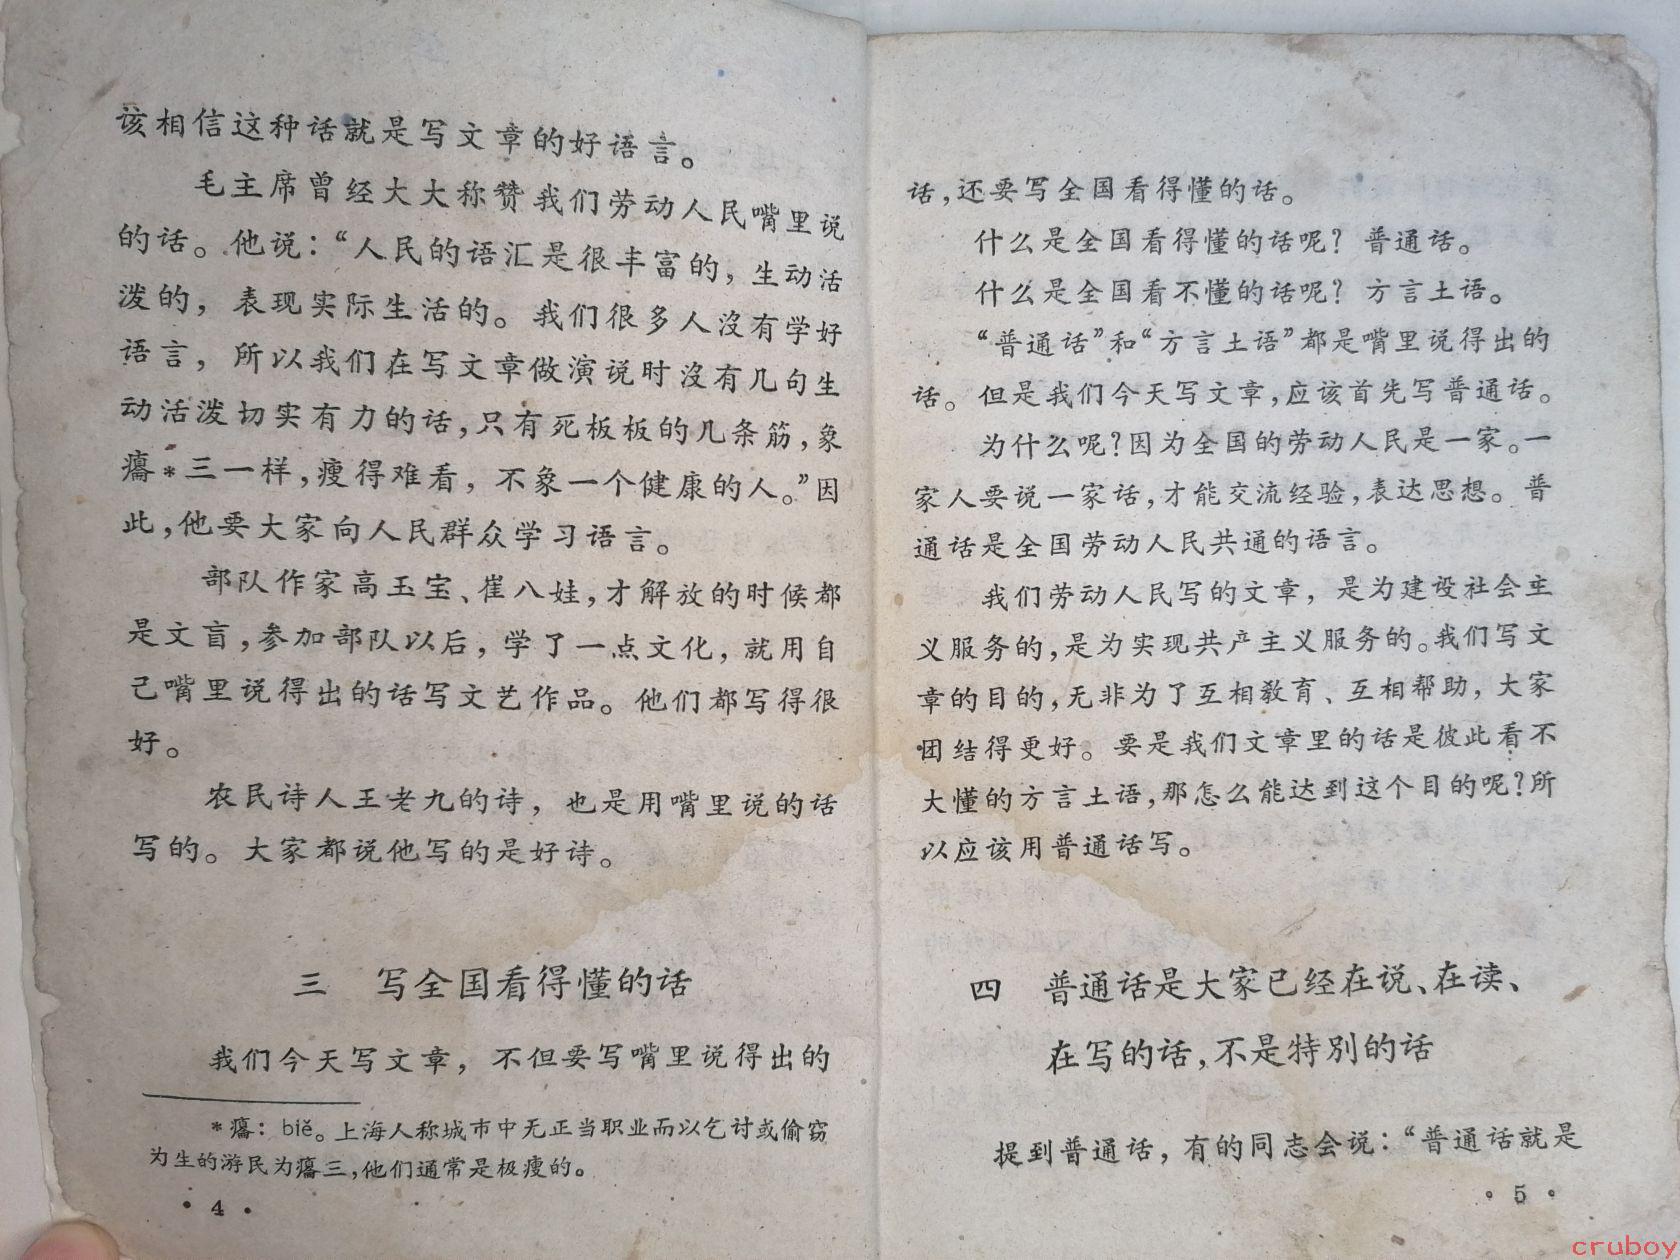 该相信这种话就是写文章的好语言。
毛主席曾经大大称赞我们劳动人民嘴里说
的话。他说：“人民的语汇是很丰富的，生动活
泼的，表现实际生活的。我们很多人沒有学好
语言，所以我们在写文章做演说时沒有几句生
动活泼切实有力的话，只有死板板的几条筋，象
癟*三一样，瘦得难看，不象一个健康的人。”因
此，他要大家向人民群众学习语言。
部队作家高玉宝、崔八娃，才解放的时候都
是文盲，参加部队以后，学了一点文化，就用自
己嘴里说得出的话写文艺作品。他们都写得很
好。
农民诗人王老九的诗，也是用嘴里说的话
写的。大家都说他写的是好诗。
三　写全国看得懂的话
我们今天写文章，不但要写嘴里说得出的
*癟：biě。上海人称城市中无正当职业而以乞讨或偷窃
为生的游民为癟三，他们通常是极瘦的。
·4·
话，还要写全国看得懂的话。
什么是全国看得懂的话呢？普通话。
什么是全国看不懂的话呢？方言土语。
“普通话”和“方言土语”都是嘴里说得出的
话。但是我们今天写文章，应该首先写普通话。
为什么呢？因为全国的劳动人民是一家。一
家人要说一家话，才能交流经验，表达思想。普
通话是全国劳动人民共通的语言。
我们劳动人民写的文章，是为建设社会主
义服务的，是为实现共产主义服务的。我们写文
章的目的，无非为了互相教育、互相帮助，大家
团结得更好。要是我们文章里的话是彼此看不
大懂的方言土语，那怎么能达到这个目的呢？所
以应该用普通话写。
四　普通话是大家已经在说、在读、
在写的话，不是特别的话
提到普通话，有的同志会说：“普通话就是
·5·
cruboy